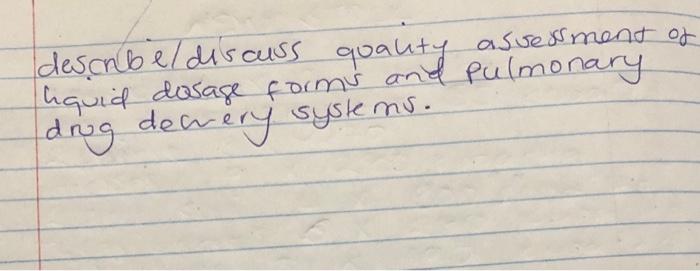 describe/discuss quality assessment of
liquid dosage forms and pulmonary
drug delivery systems.